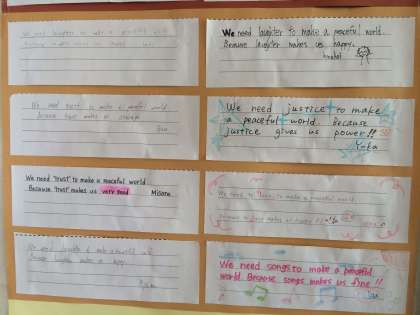 We need laughter to make a peaceful world
Because laughter makes us happy.
We need trust to make a peaceful world
Because trust makes us
We need laughter to make a peaceful world.
Because laughter makes us happy.
We need justice to make
a peaceful world. Because
justice gives us power!!
Yuka
We need trust to make a peaceful world
Because trust makes us very good Misora
We need laughter to make a peaceful world
Because laughter makes us happy.
We need to make a peaceful world
Because makes us
We need songs to make a peaceful
world. Because songs makes us fine!!